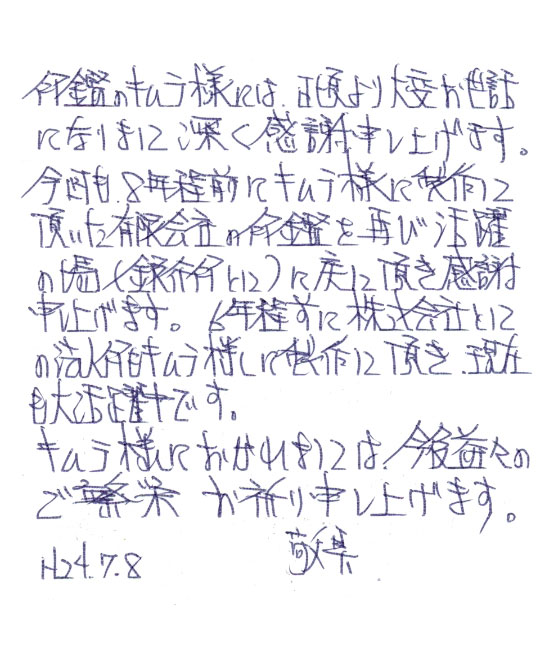 印鑑のキムラ様には、日頃より大変お世話
になりまして深く感謝申し上げます。
今回も、8年程前にキムラ様に製作して
頂いた有限会社の印鑑を再び活躍
の場(銀行印として)に戻して頂き感謝
申し上げます。6年程前に株式会社として
の法人印もキムラ様にて製作して頂き、現在
も大活躍中です。
キムラ様におかれましては、今後益々の
ご繁栄 お祈り申し上げます。
H24.7.8 敬具